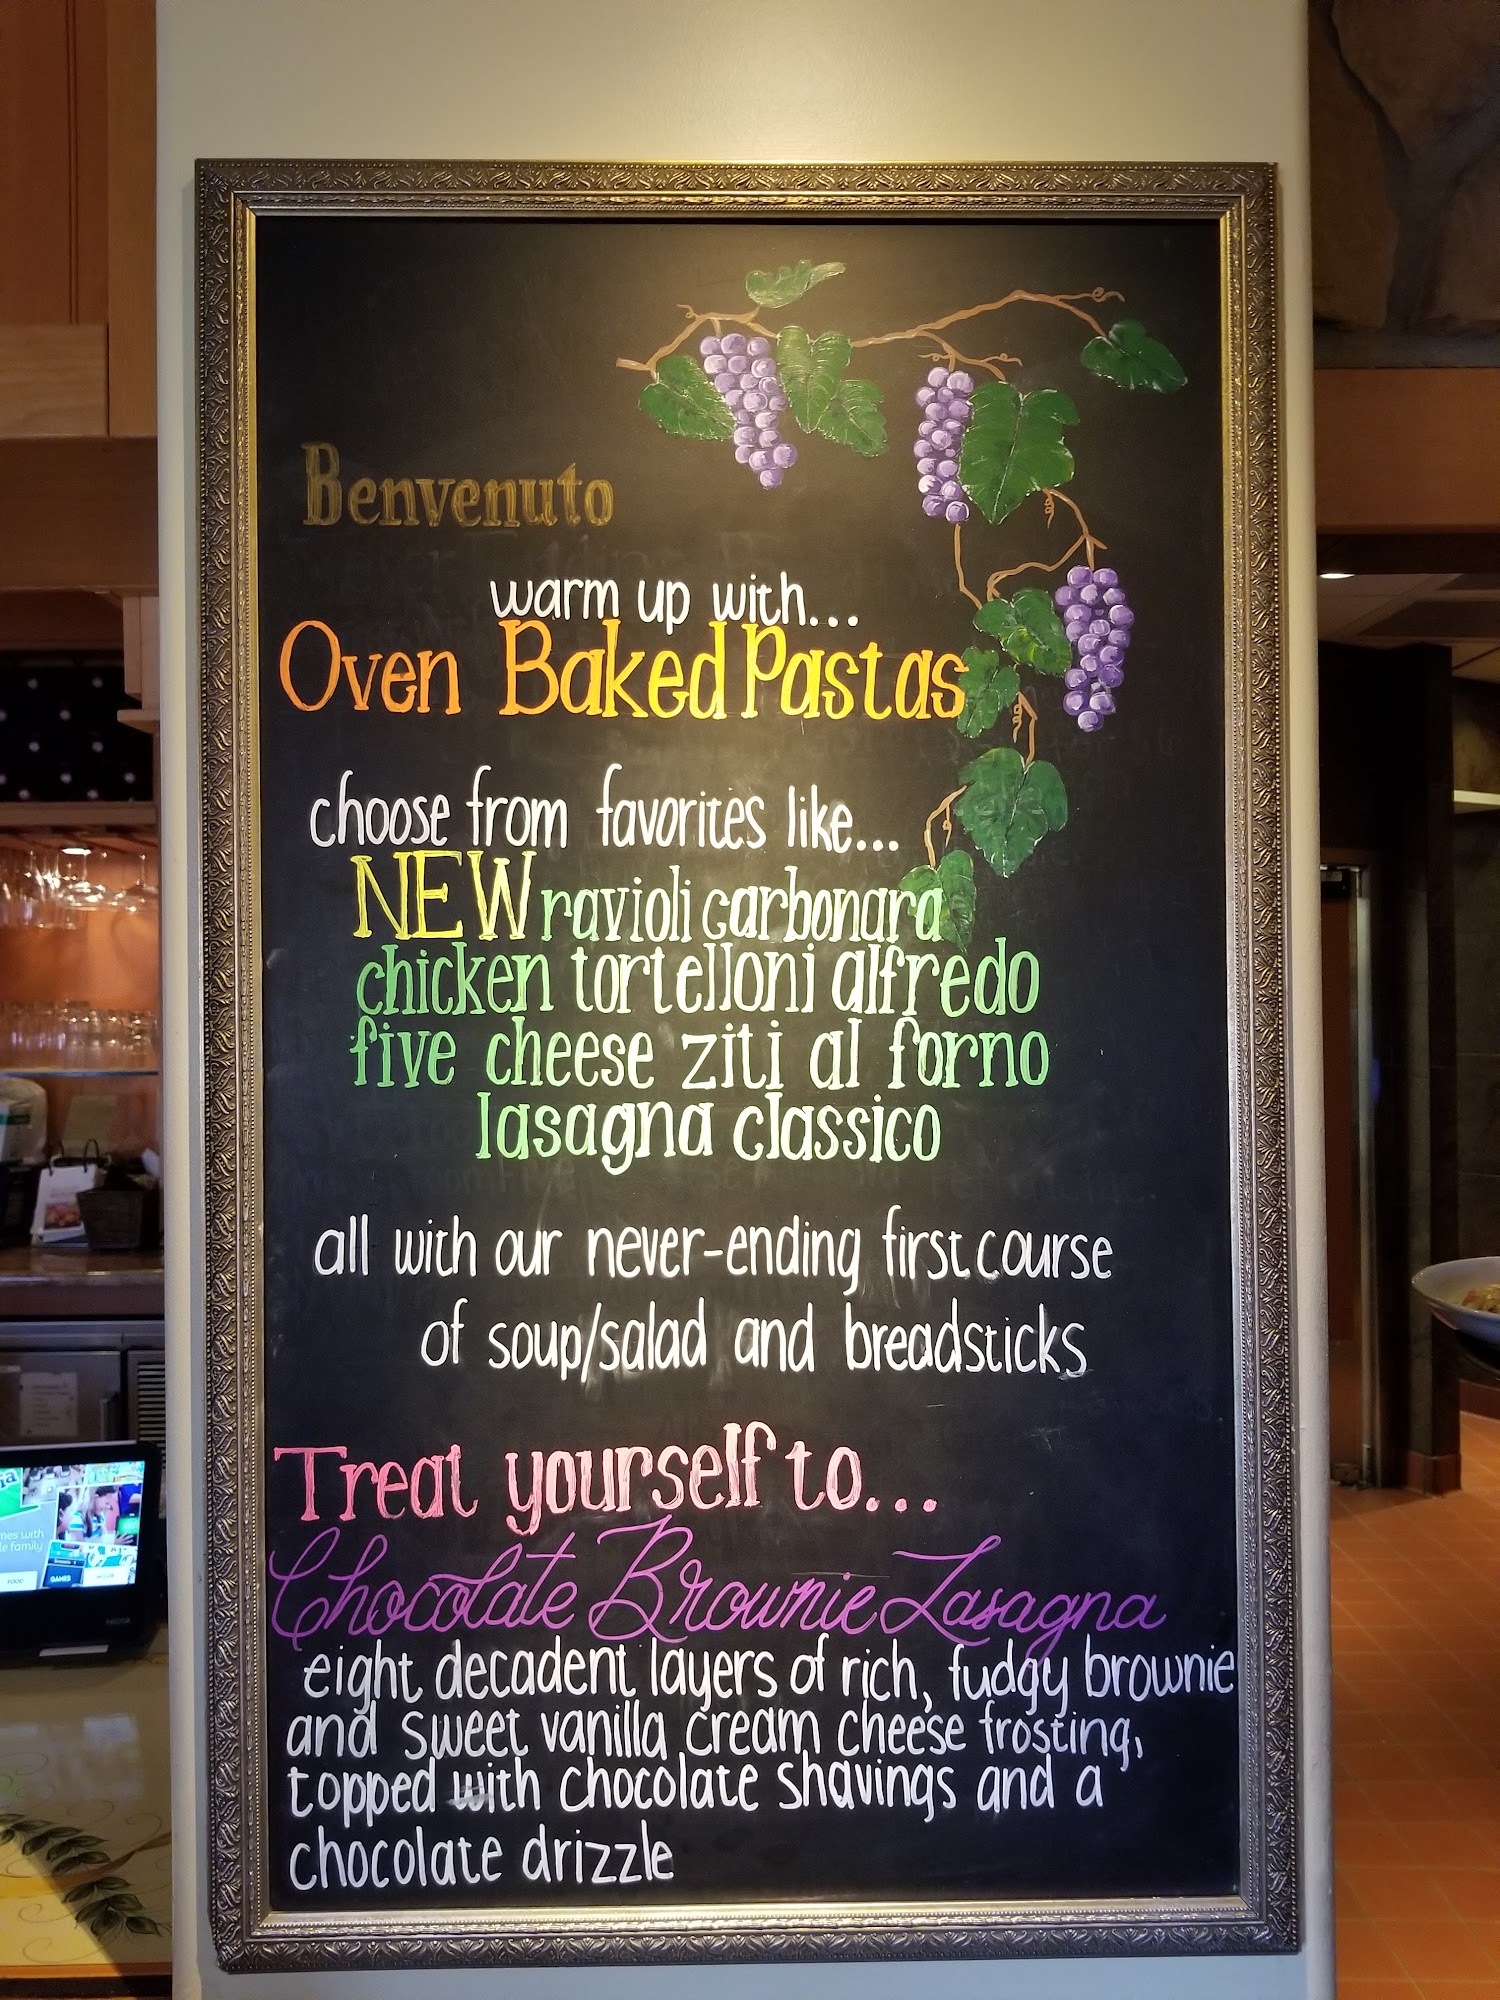 Benvenuto
warm up with...
Oven Baked Pastas
choose from favorites like...
NEW ravioli carbonara
chicken tortelloni alfredo
five cheese ziti al forno
lasagna classico
all with our never-ending first course
of soup/salad and breadsticks
Treat yourself to...
Chocolate Brownie Lasagna
eight decadent layers of rich, fudgy brownie
and sweet vanilla cream cheese frosting,
topped with chocolate shavings and a
chocolate drizzle
mes with
le family
FOOD
GAMES